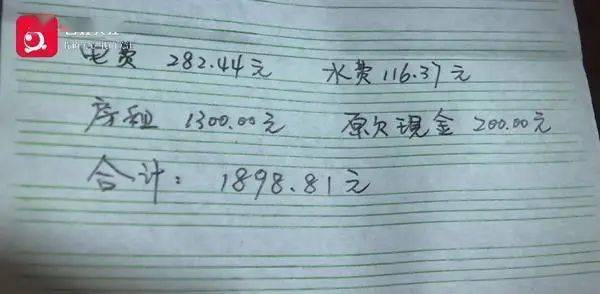 电费 282.44元 水费 116.37元
房租 1300.00元 原欠現金 200.00元
合计：1898.81元